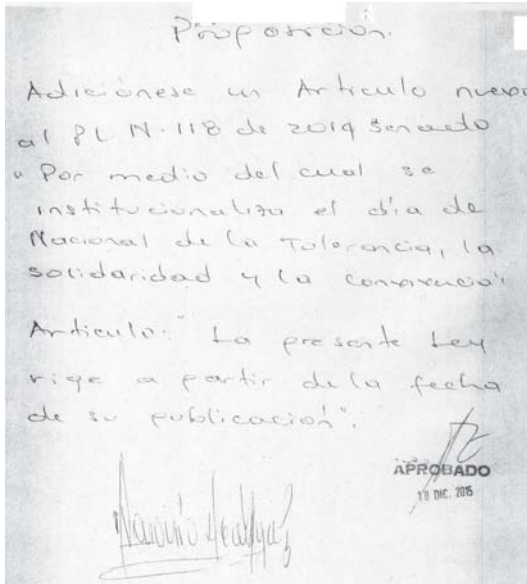 Proposición.
Adiciónese un Artículo nuevo
al PL N. 118 de 2014 Senado
"Por medio del cual se
institucionaliza el día de
Nacional de la Tolerancia, la
solidaridad y la convivencia"
Artículo: "La presente Ley
rige a partir de la fecha
de su publicación".
APROBADO
10 DIC. 2015